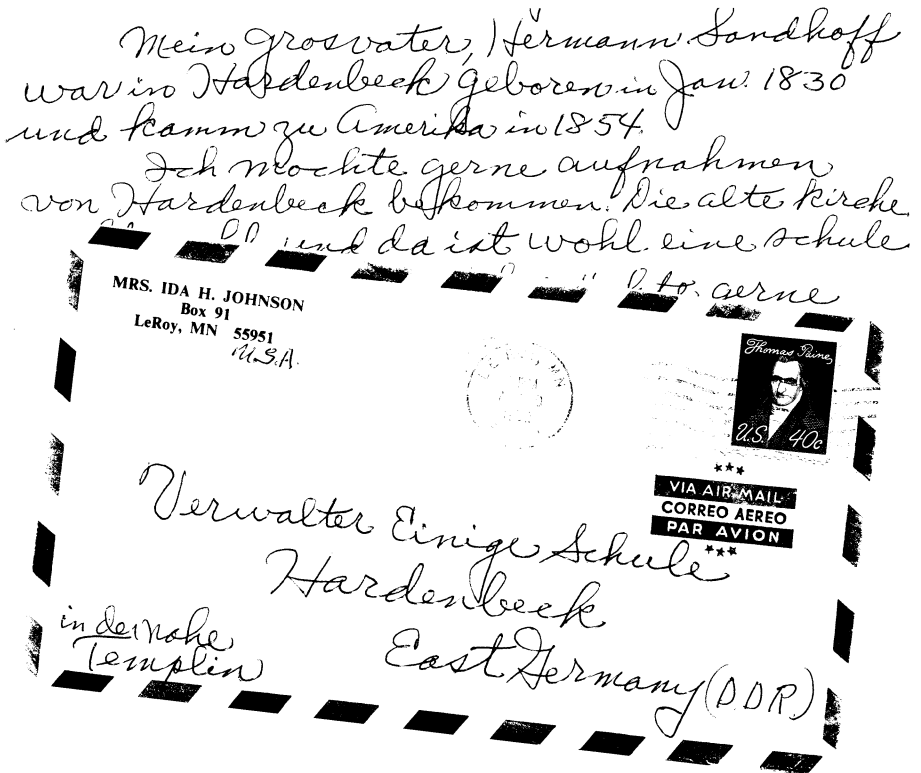 Mein Grosvater, Hermann Sandhoff
war in Hardenbeck geboren in Jan. 1830
und kamm zu Amerika in 1854.
Ich mochte gerne aufnahmen
von Hardenbeck bekommen. Die alte Kirche
und da ist wohl eine schule
gerne
MRS. IDA H. JOHNSON
Box 91
LeRoy, MN 55951
U.S.A.
Thomas Paine
U.S. 40c
VIA AIR MAIL
CORREO AEREO
PAR AVION
Verwalter Einige Schule
Hardenbeck
in der nahe
Templin
East Germany (DDR)